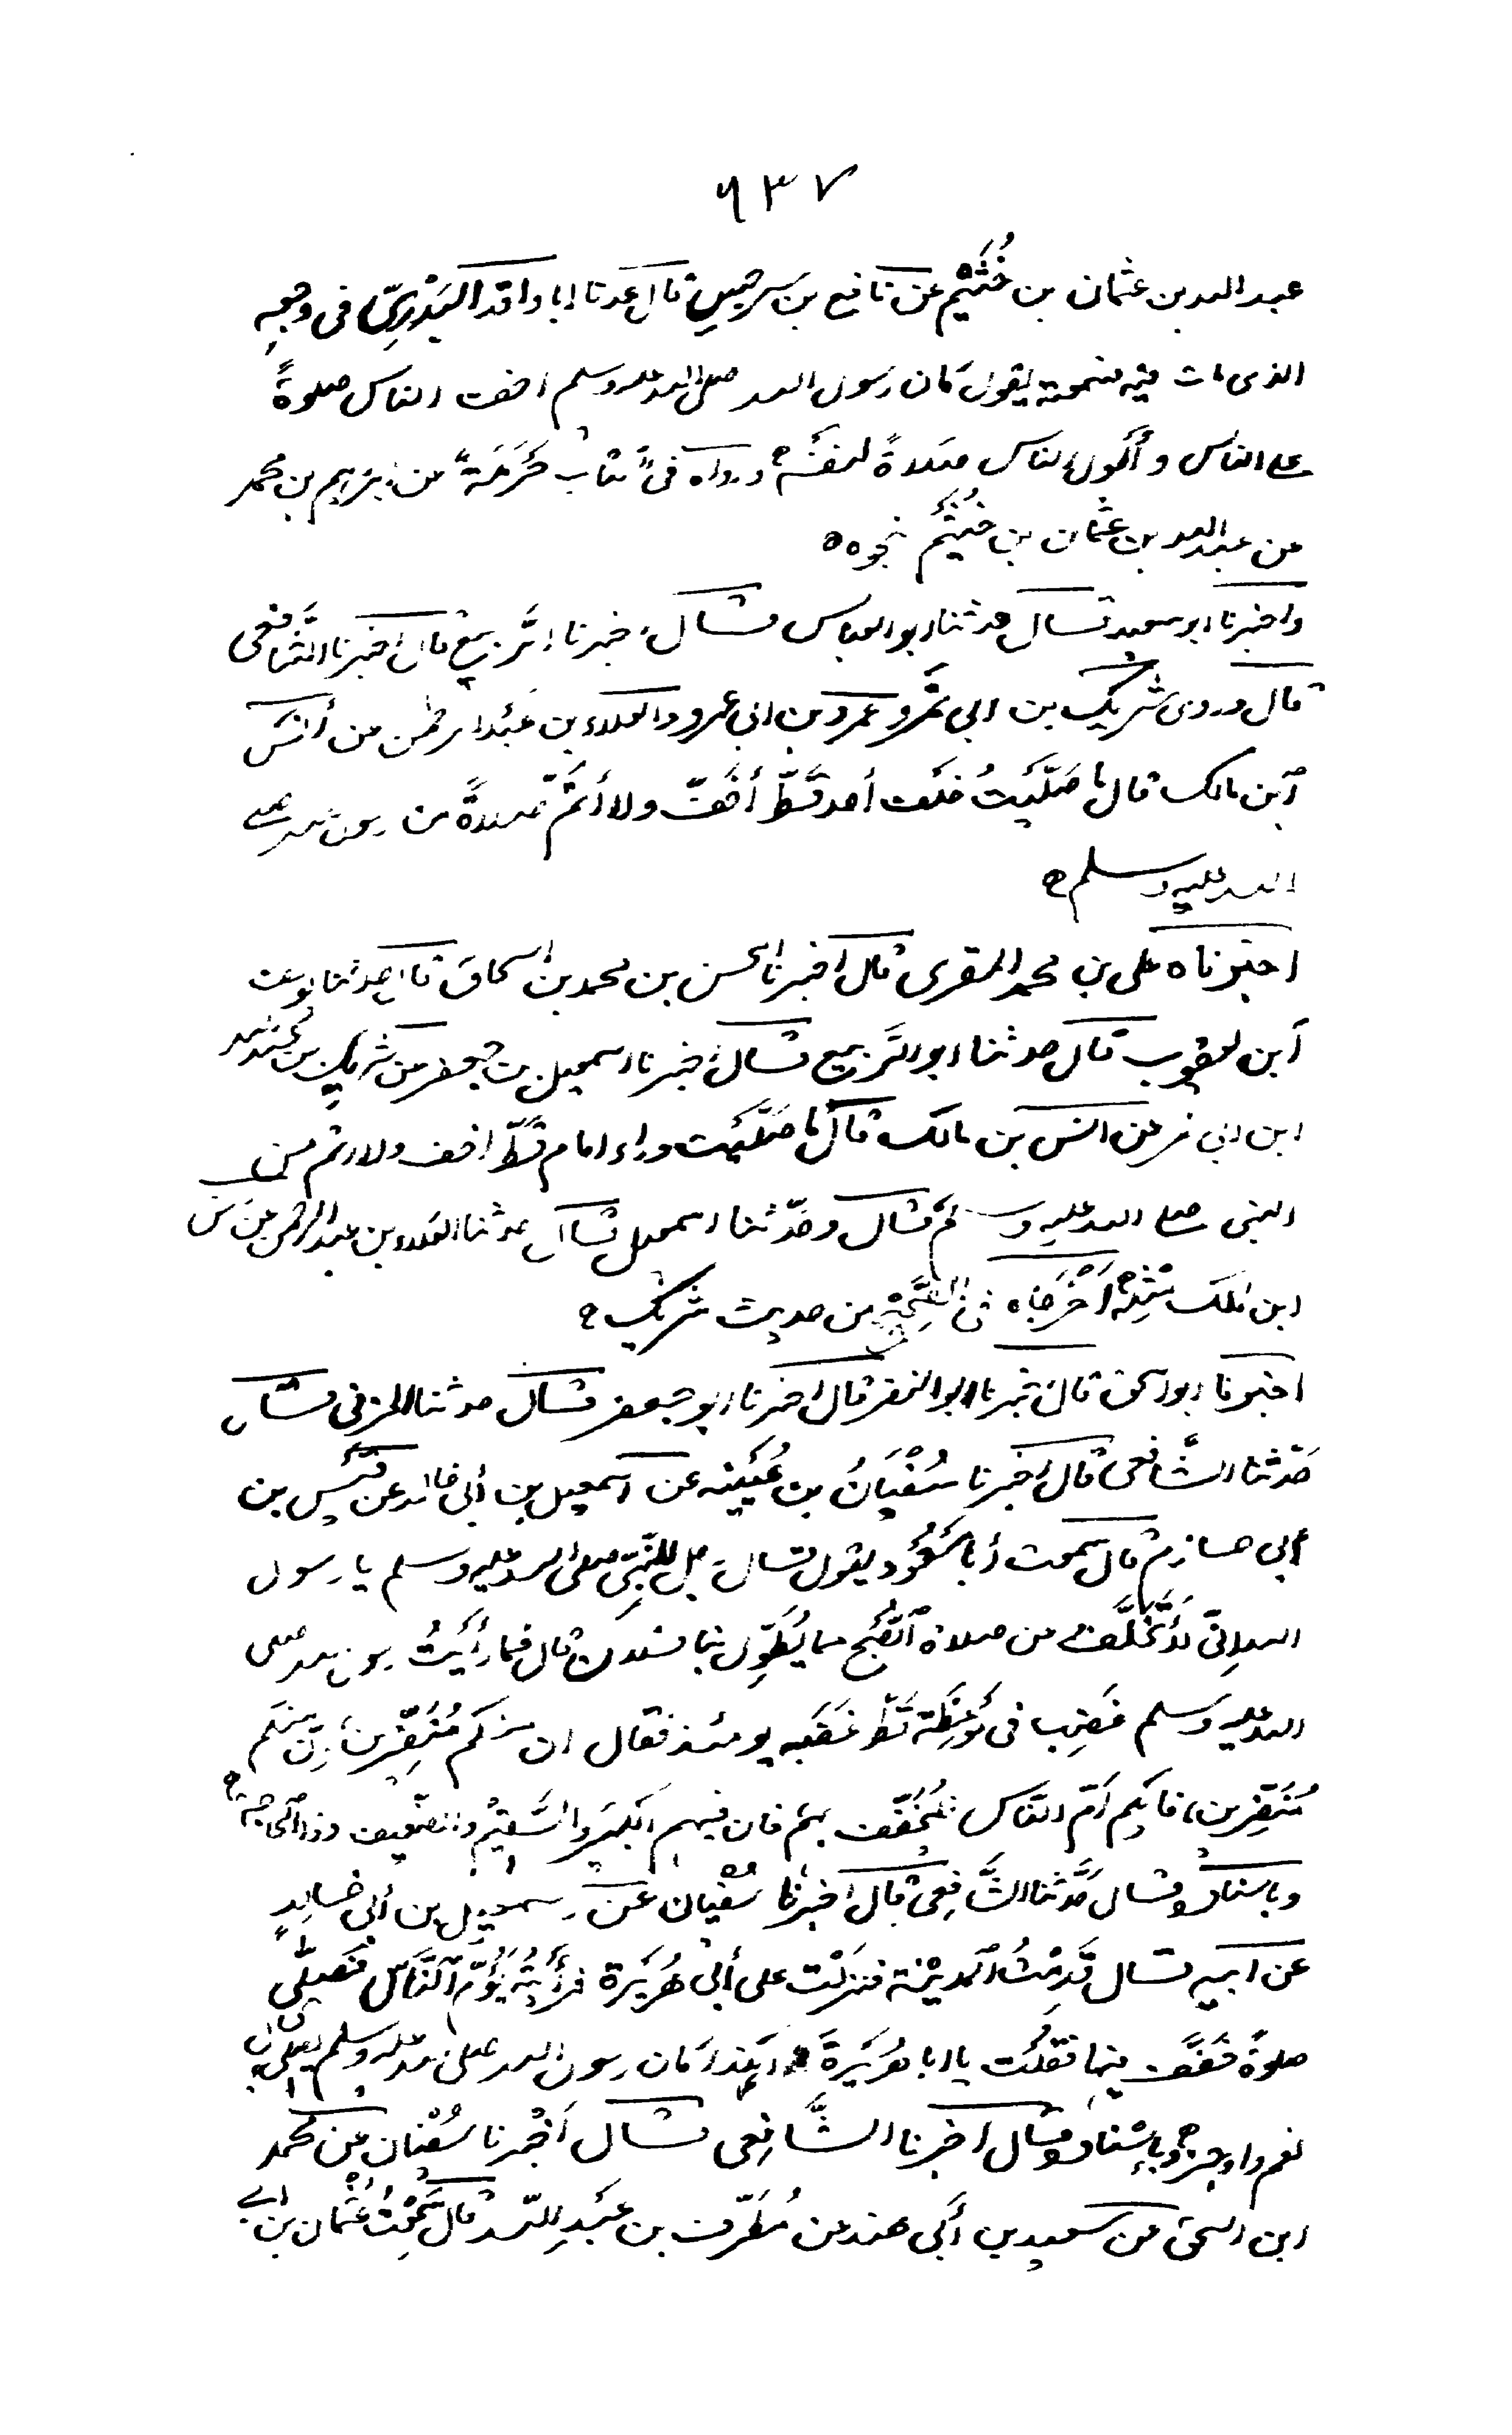 ٦٣٧
عبد الله بن عثمان بن خُثَيْم عن نافع بن سرجس قال عدنا ابا واقد البدريّ فى وجعه
الذى مات فيه فسمعته يقول كان رسول الله صلى الله عليه وسلم اخف الناس صلوةً
على الناس وأطول الناس صلاةً لنفسه ورواه فى كتاب حَرْمَلَة عن ابراهيم بن محمد
عن عبد الله بن عثمان بن خُثَيْم نحوه ه
واخبرنا ابو سعيد قال حدثنا ابو العباس قال اخبرنا الرَّبيع قال اخبرنا الشَّافعى
قال وروى شريك بن ابى نَمْر وعمرو بن ابى عمرو والعلاء بن عَبْد الرحمن عن أنس
ابن مالك قال ما صَلَّيتُ خلف أحد قطّ أخفّ ولا أتمّ صلاةً من رسول الله صلى
الله عليه وسلم ه
اخبرناه على بن محمد المقرى قال اخبرنا الحسن بن محمد بن اسحاق قال حدثنا يوسف
ابن يعقوب قال حدثنا ابو الرَّبيع قال اخبرنا اسمعيل بن جعفر عن شريك بن عبد الله
ابن ابى نمر عن انس بن مالك قال ما صَلَّيت وراء امام قطّ اخف ولا اتم من
النبى صلى الله عليه وسلم قال وحدّثنا اسمعيل قال حدثنا العلاء بن عبد الرحمن عن انس
ابن مالك مِثْلَه أَخْرَجَاه فى الصَّحِيْح من حديث شريك ه
اخبرنا ابو اسحق قال اخبرنا ابو النضر قال اخبرنا ابو جعفر قال حدثنا المزنى قال
حدّثنا الشَّافعى قال اخبرنا سُفْيَانُ بن عُيَيْنه عن اسمعيل بن أبى خالد عن قَيْس بن
أبى حازم قال سمعت أبا مسعُوْد يقول قال رجل للنَّبِىّ صلى الله عليه وسلم يا رسول
الله انّى لأتَخَلَّف عن صلاة الصُّبْح مما يُطَوِّل بنا فلان قال فما رأيْتُ رسول الله صلى
الله عليه وسلم غضب فى مَوْعِظَة قَطّ غَضَبه يومئذ فقال ان منكم مُنَفِّرين، إنّ منكم
مُنَفِّرين، فايكم أمّ النّاس فليُخَفِّف بهم فان فيهم الكبيرَ والسَّقيْم والضّعيف وذا الحاجة ه
وباسناده قال حَدَّثنا الشَّافِعى قال اخبرنا سُفْيان عن اسمعيل بن أبى خالدٍ
عن ابيه قال قَدِمْتُ المديْنة فنزلت على أبى هُرَيْرة فرأيته يَؤُمّ النَّاسَ فيَصِلّى
صلوةً خَفَّف فيها فقلْت يا ابا هُرَيْرَةَ اهكذا كان رسول الله صلى الله عليه وسلم يصلى قال
نعم واوجز ه وبإسْناده قال اخبرنا الشَّافِعى قال أخْبرنا سُفْيَان عن محمد
ابن اسحق عن سعيد بن أبى هند عن مُطَرّف بن عَبْدِ اللّه قال سَمِعْتُ عُثْمان بن ابى